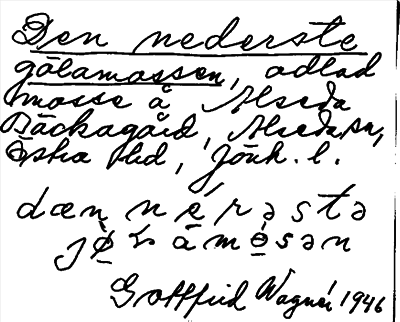 Den nederste
gölamossen, odlad
mosse å Alseda
Bäckagård, Alseda sn,
Östra Hd, Jönk. l.
dæn nérəstə
Gottfrid Wagnér 1946